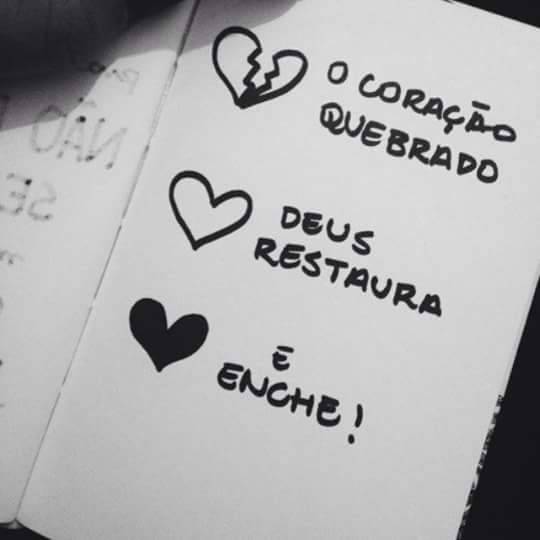 O CORAÇÃO
QUEBRADO
DEUS
RESTAURA
E
ENCHE!